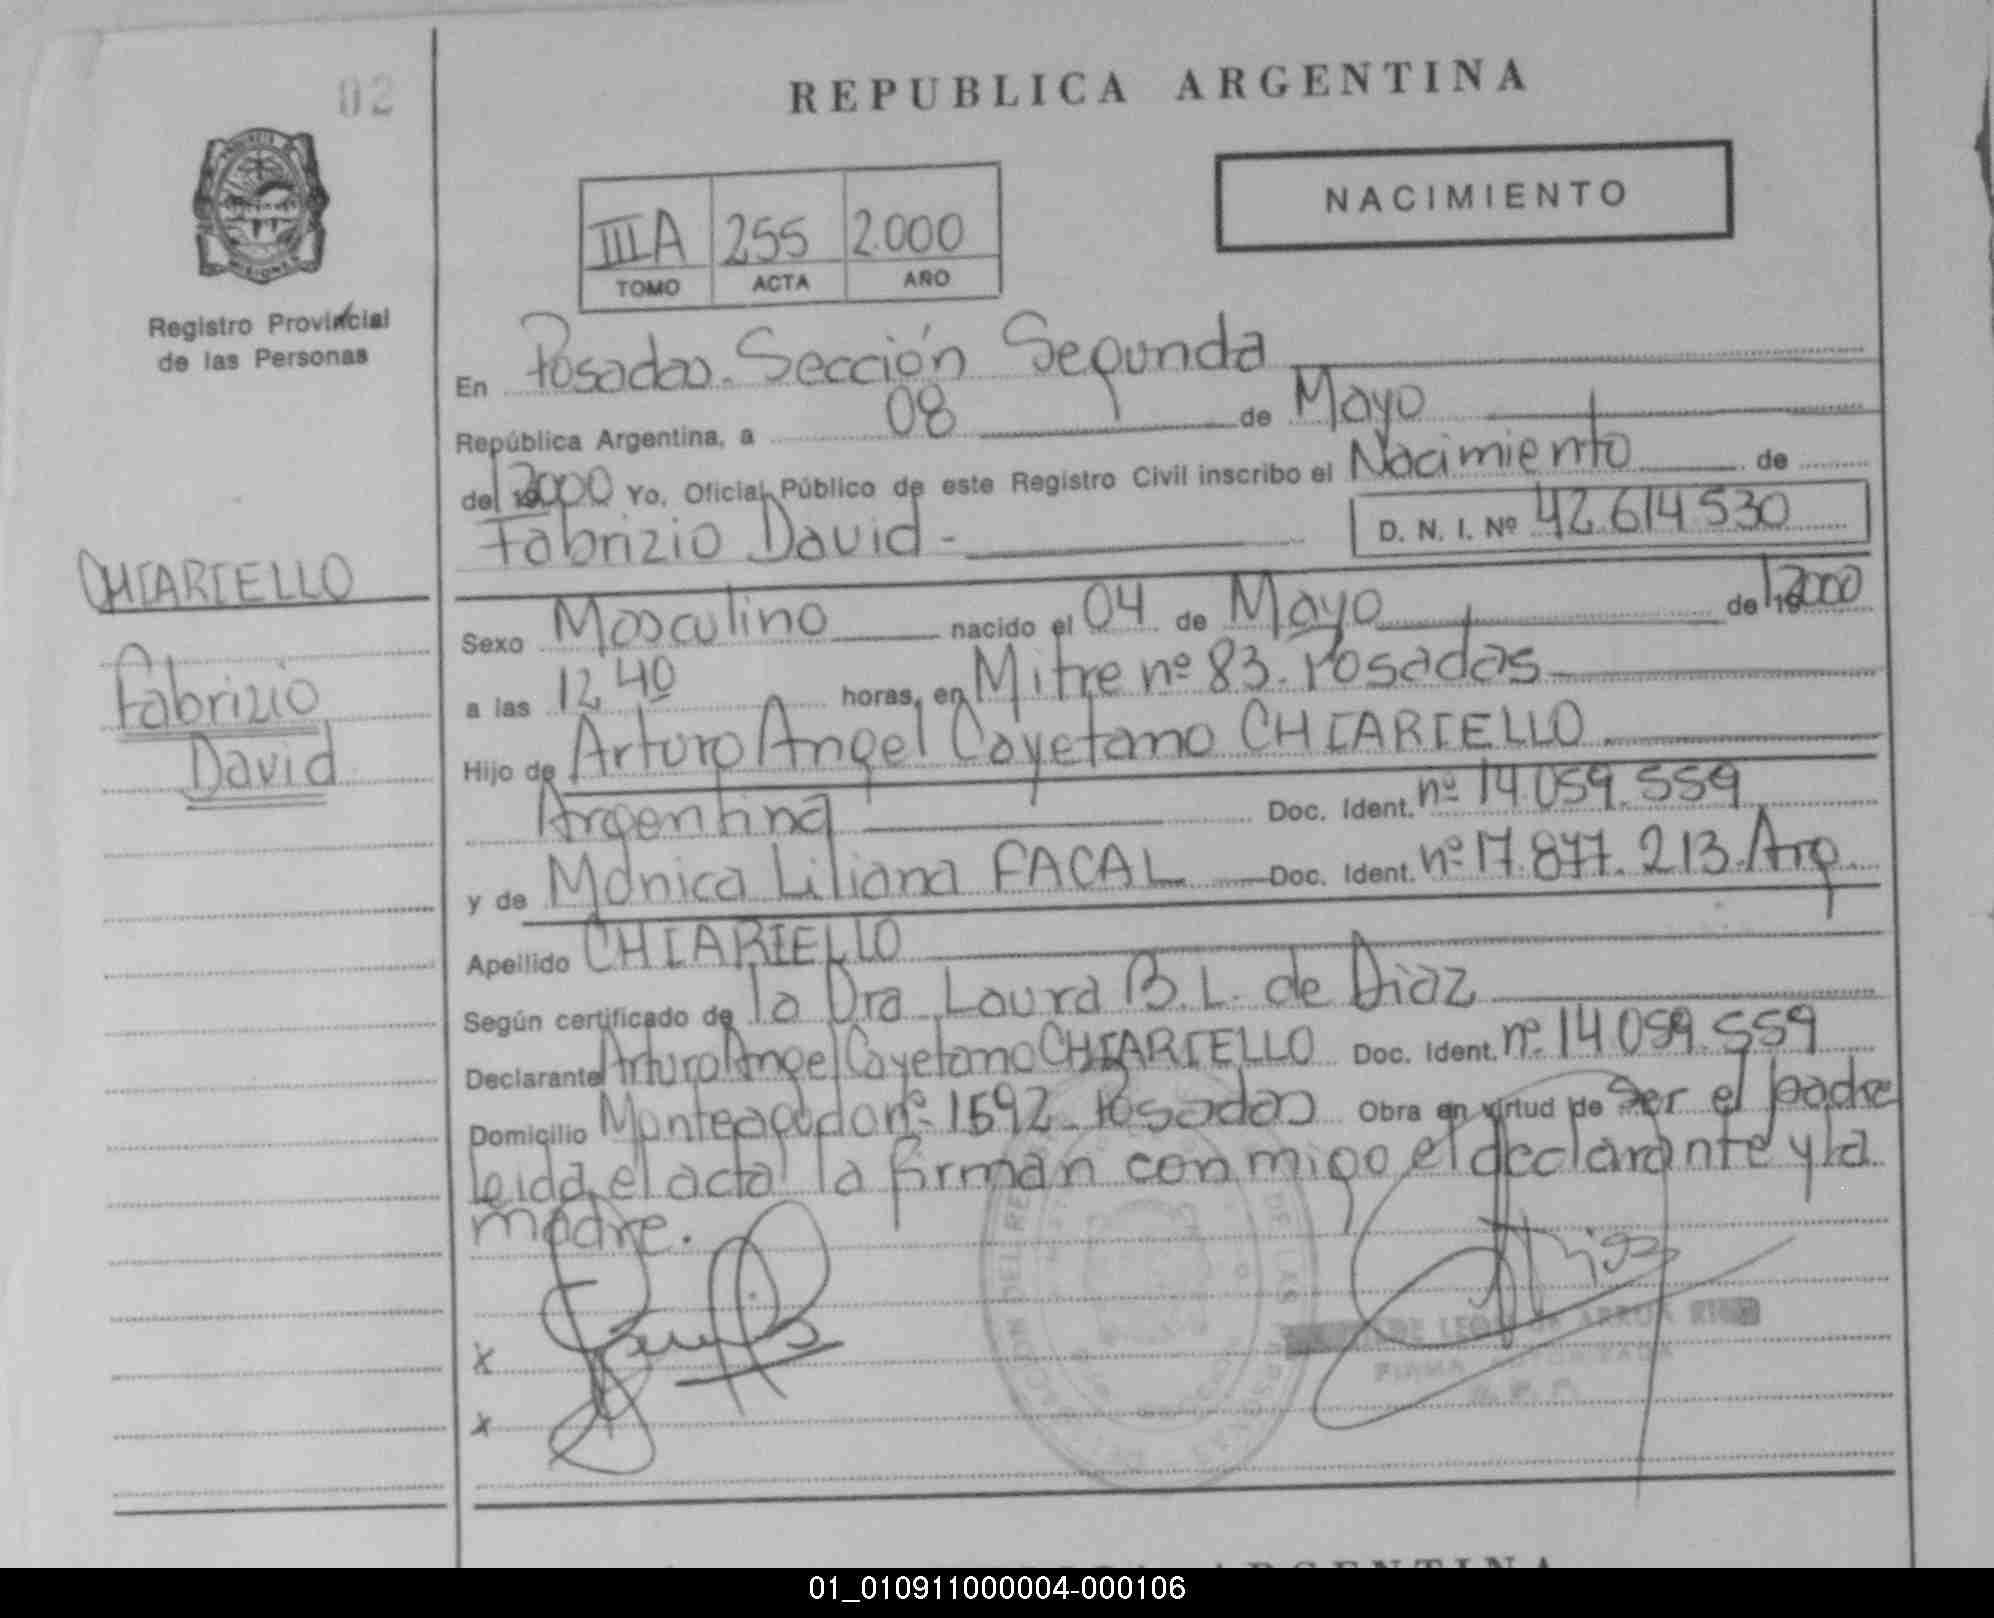 02
REPUBLICA ARGENTINA
NACIMIENTO
IIIA 255 2.000
TOMO ACTA AÑO
Registro Provincial
de las Personas
En Posadas. Sección Segunda
República Argentina, a 08 de Mayo
de 2000 Yo, Oficial Público de este Registro Civil inscribo el Nacimiento de
Fabrizio David - D. N. I. Nº 42.614.530
CHIARIELLO
Fabrizio
David
Sexo Masculino nacido el 04 de Mayo de 2000
a las 12 40 horas, en Mitre nº 83. Posadas
Hijo de Arturo Angel Cayetano CHIARIELLO
Argentina Doc. Ident. nº 14.059.559
y de Mónica Liliana FACAL Doc. Ident. nº 17.877.213. Arg
Apellido CHIARIELLO
Según certificado de la Dra Laura B. L. de Diaz
Declarante Arturo Angel Cayetano CHIARIELLO Doc. Ident. nº 14.059.559
Domicilio Monteagudo nº 1592 - Posadas Obra en virtud de ser el padre
leida el acta la firman conmigo el declarante y la
madre.
x
x
FIRMA AUTORIZADA
ARGENTINA
01_010911000004-000106